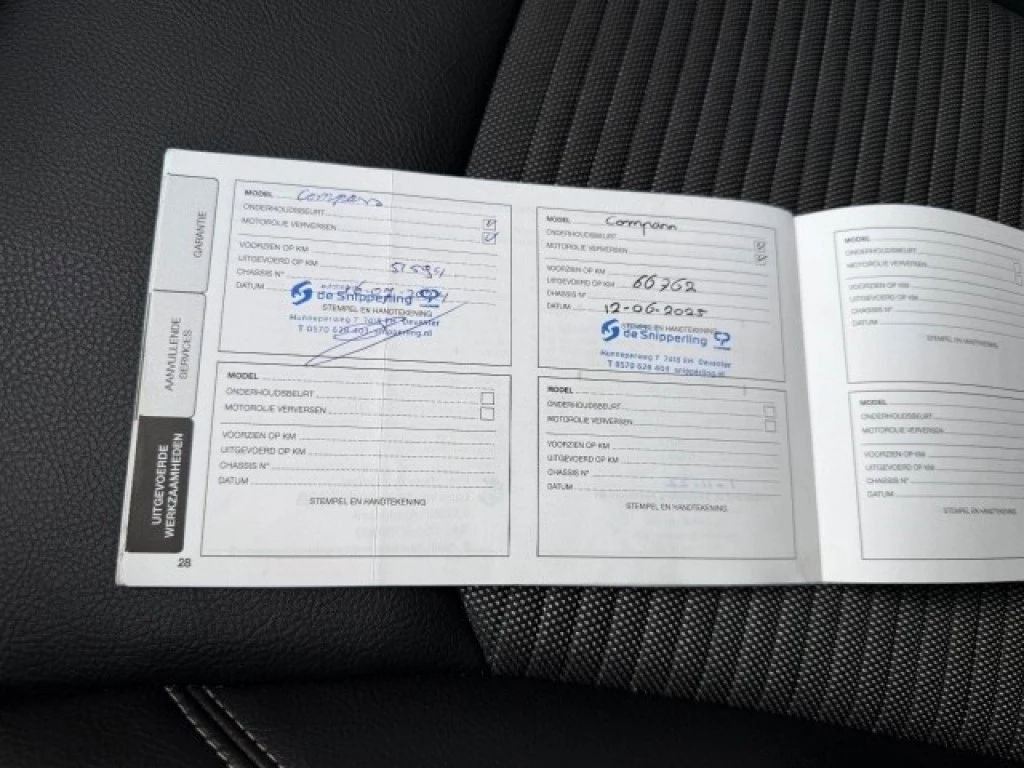 GARANTIE
AANVULLENDE
SERVICES
UITGEVOERDE
WERKZAAMHEDEN
28
MODEL
ONDERHOUDSBEURT
MOTOROLIE VERVERSEN
VOORZIEN OP KM
UITGEVOERD OP KM
CHASSIS N°
DATUM
de Snipperling
STEMPEL EN HANDTEKENING
Hunneperweg 7 7418 EH Deventer
T 0570 628 403 snipperling.nl
MODEL
ONDERHOUDSBEURT
MOTOROLIE VERVERSEN
VOORZIEN OP KM
UITGEVOERD OP KM
CHASSIS N°
DATUM
STEMPEL EN HANDTEKENING
MODEL
ONDERHOUDSBEURT
MOTOROLIE VERVERSEN
VOORZIEN OP KM
UITGEVOERD OP KM 66762
CHASSIS N°
DATUM 12-06-2025
STEMPEL EN HANDTEKENING
de Snipperling
Hunneperweg 7 7418 EH Deventer
T 0570 628 403 snipperling.nl
MODEL
ONDERHOUDSBEURT
MOTOROLIE VERVERSEN
VOORZIEN OP KM
UITGEVOERD OP KM
CHASSIS N°
DATUM
STEMPEL EN HANDTEKENING
MODEL
ONDERHOUDSBEURT
MOTOROLIE VERVERSEN
VOORZIEN OP KM
UITGEVOERD OP KM
CHASSIS N°
DATUM
STEMPEL EN HANDTEKENING
MODEL
ONDERHOUDSBEURT
MOTOROLIE VERVERSEN
VOORZIEN OP KM
UITGEVOERD OP KM
CHASSIS N°
DATUM
STEMPEL EN HANDTEKENING